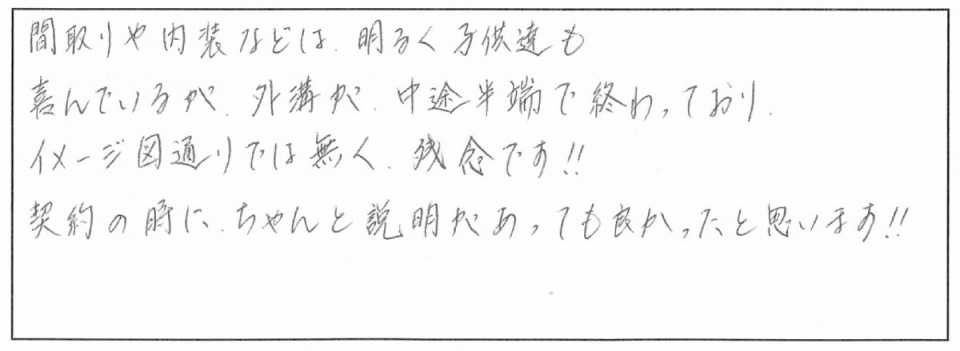 間取りや内装などは、明るく子供達も
喜んでいるが、外溝が、中途半端で終わっており、
イメージ図通りでは無く、残念です!!
契約の時に、ちゃんと説明があっても良かったと思います!!